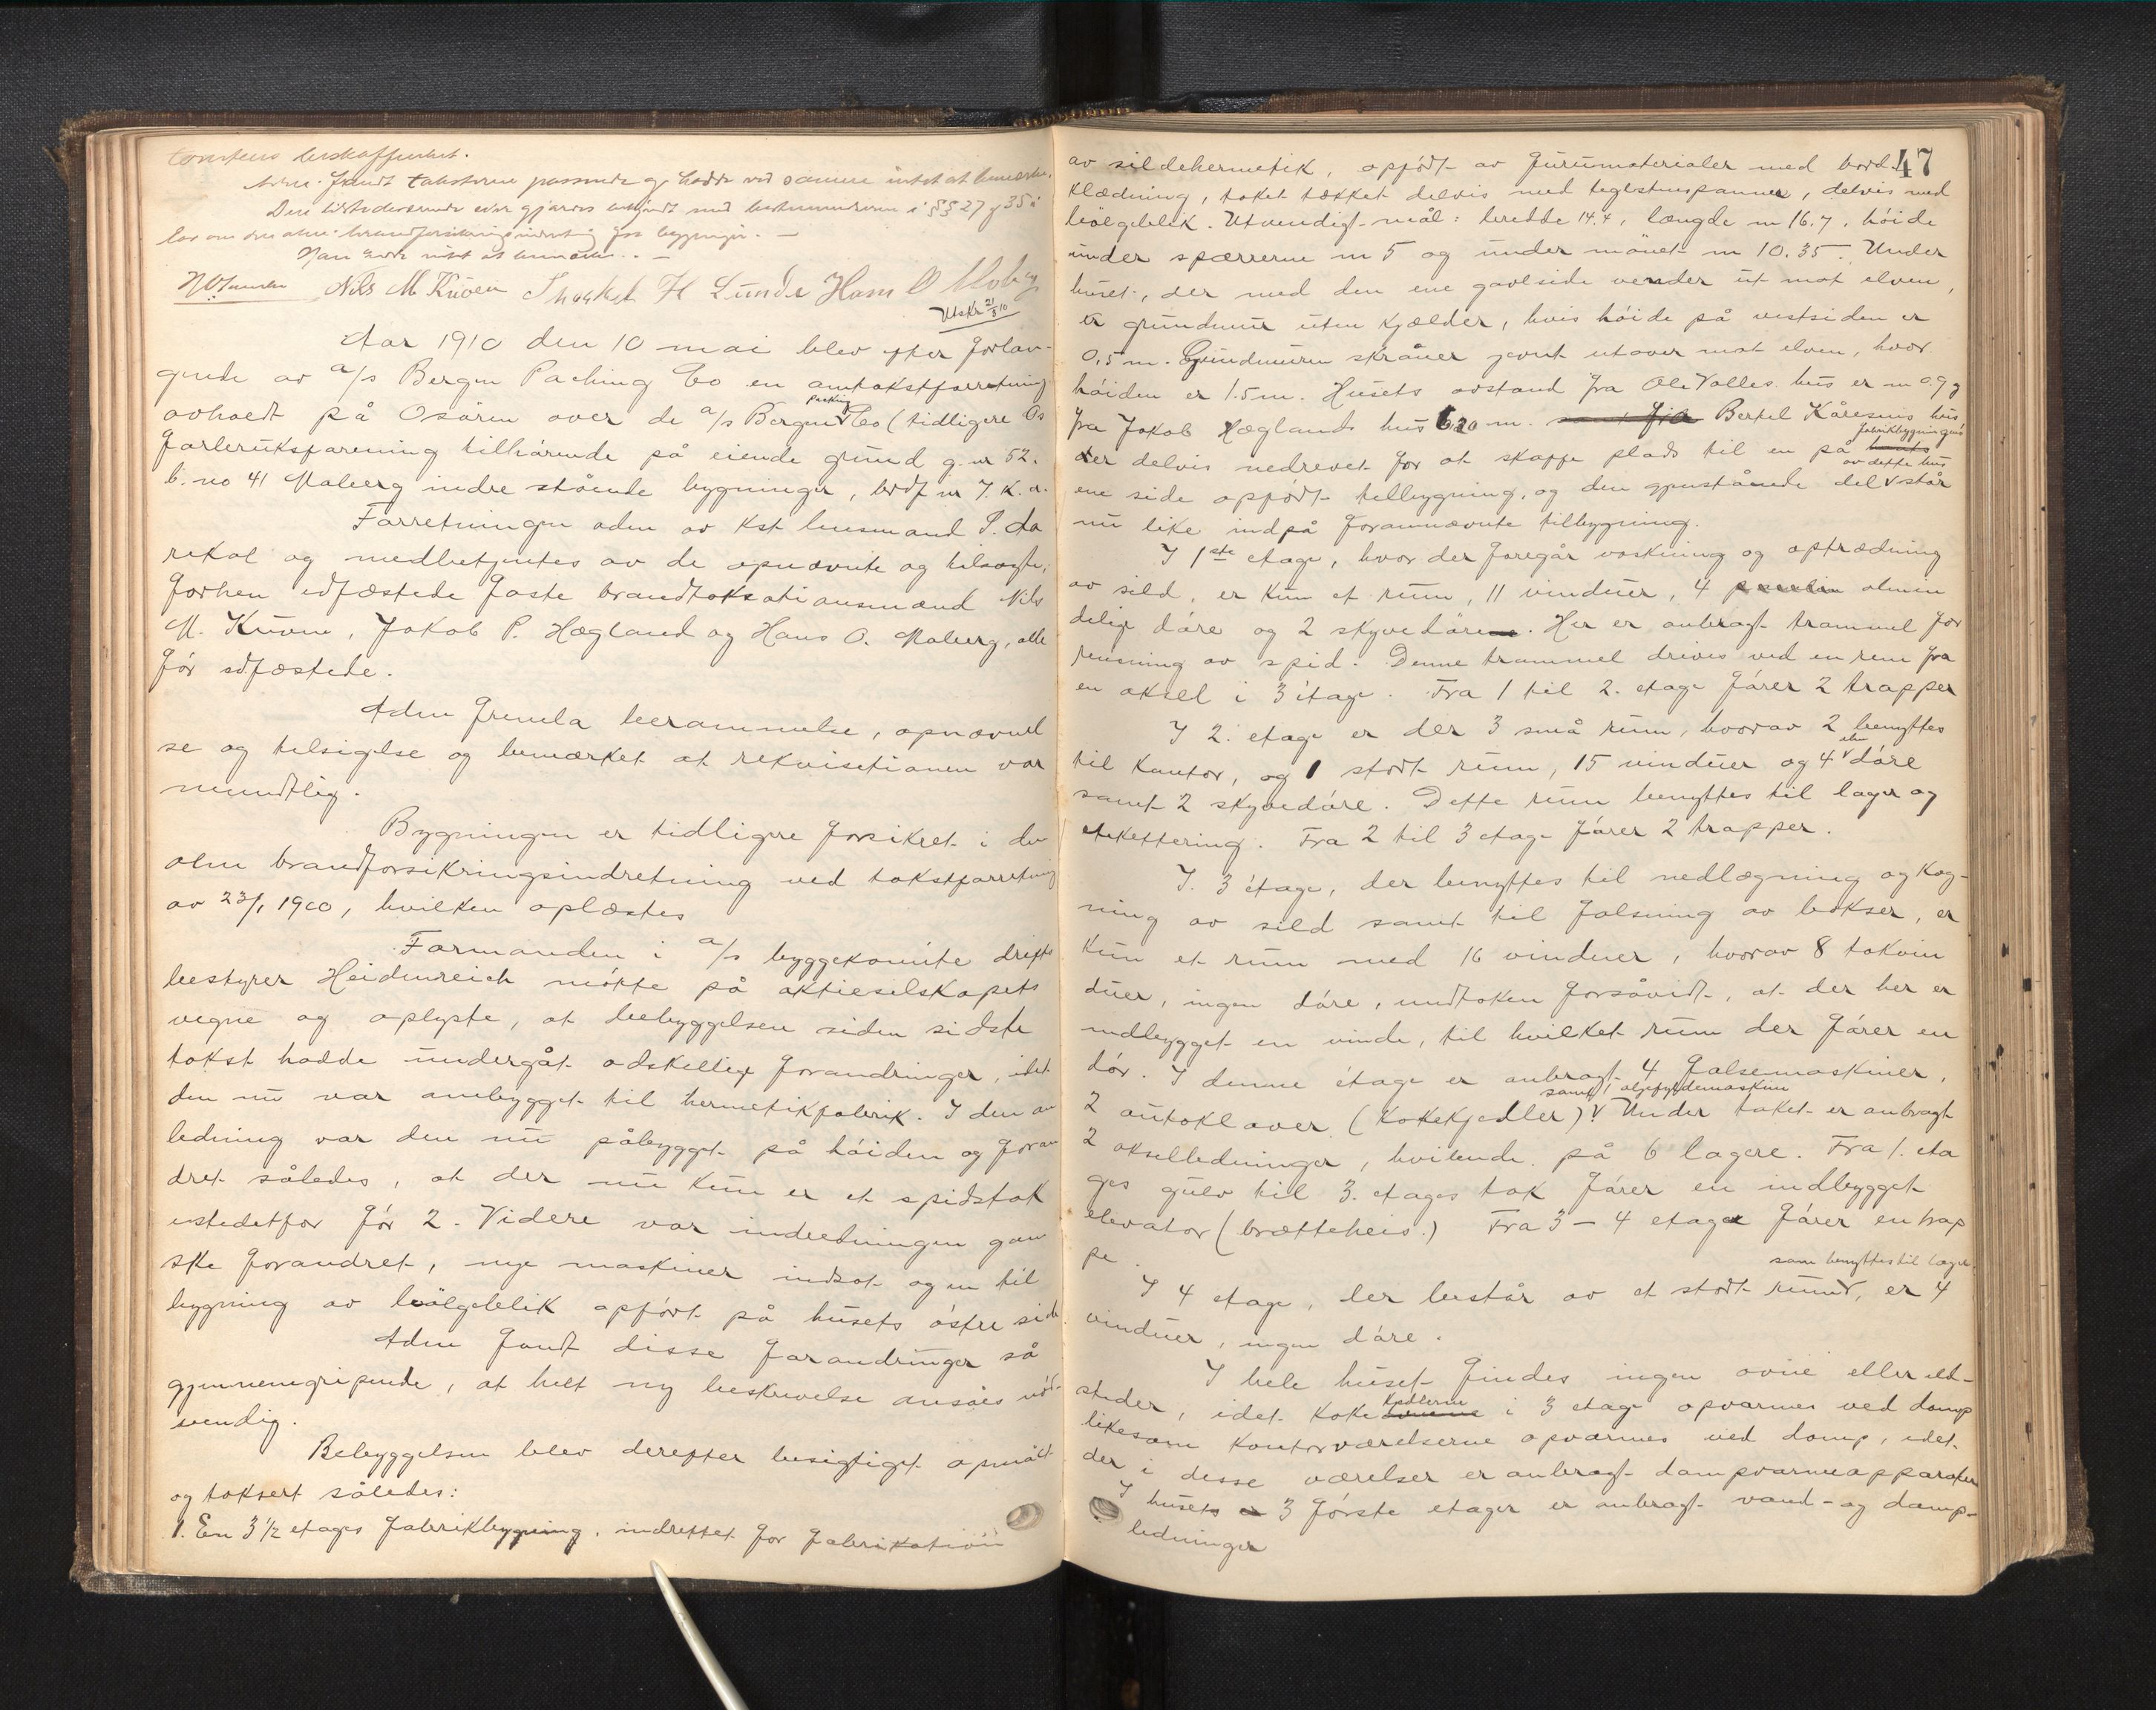 takstens beskaffenhet.
Adm. fandt taksterne passende og hadde ved samme intet at bemærke.
Den tilstedeværende eier gjordes bekjendt med bestemmelserne i §§ 27 og 35 i
lov om den alm. brandforsikringsindretning for bygninger. —
Han hadde intet at bemærke. —
Nils M. Kuven Thorkel H Lunde Hans O Moberg
Utskr 21/5 10
Aar 1910 den 10 mai blev efter forlan-
gende av a/s Bergen Packing Co en omtakstforretning
avholdt på Osøren over de a/s Bergen Packing Co (tidligere Os
Garveriksforening tilhørende på eiende grund g. nr 52.
b. no 41 Moberg indre stående bygninger, brdf nr 7. K. a.
Forretningen adm av kst lensmand P. Aa
rekol og medbetjentes av de opnævnte og tilsagte,
forhen edfæstede faste brandtakstationsmænd Nils
M. Kuven, Jakob P. Hægland og Hans O. Moberg, alle
før edfæstede.
Adm fremla berammelse, opnævnel
se og tilsigelse og bemærket at rekvisitionen var
mundtlig.
Bygningen er tidligere forsikret i den
alm brandforsikringsindretning ved takstforretning
av 23/1 1900, hvilken oplæstes
Formanden i a/s byggekomite drifts
bestyrer Heidenreich møtte på aktieselskapets
vegne og oplyste, at bebyggelsen siden sidste
takst hadde undergåt adskellige forandringer, idet
den nu var ombygget til hermetikfabrik. I den an
ledning var den nu påbygget på høiden og foran
dret således, at der nu kun er et spidstak
istedetfor før 2. Videre var indredningen gan
ske forandret, nye maskiner indsat og en til
bygning av bølgeblik opført på husets østre side
Adm fandt disse forandringer så
gjennemgripende, at helt ny beskrivelse ansåes nød-
vendig.
Bebyggelsen blev derefter besigtiget opmålt
og taksert således:
1. En 3 1/2 etages fabrikbygning, indrettet for fabrikation
47
av sildehermetik, opført av furumaterialer med bord-
klædning, taket tækket delvis med teglstenspanner, delvis med
bølgeblik. Utvendigt mål: bredde 14.4, længde m 16.7, høide
under spærrerne m 5 og under mønet m 10.35. Under
huset, der med den ene gavlside vender ut mot elven,
er grundmur uten kjælder, hvis høide på vestsiden er
0,5 m. Grundmuren skråner jevnt utover mot elven, hvor
høiden er 1.5 m. Husets avstand fra Ole Valles hus er m 0.9 og
fra Jakob Hæglands hus 6.20 m. samt fra Bertel Kåresens hus
der delvis nedrevet for at skaffe plads til en på husets fabrikbygningens
ene side opført tilbygning, og den gjenstående del av dette hus står
nu like indpå forannævnte tilbygning.
I 1ste etage, hvor der foregår vaskning og optrædning
av sild, er kun et rum, 11 vinduer, 4 almin
delige døre og 2 skyvedøre. Her er anbragt trommel for
rensning av spid. Denne trommel drives ved en rem fra
en aksel i 3 etage. Fra 1 til 2. etage fører 2 trapper
I 2. etage er der 3 små rum, hvorav 2 benyttes
til kontor, og 1 stort rum, 15 vinduer og 4 alm døre
samt 2 skyvedøre. Dette rum benyttes til lager og
etekettering. Fra 2 til 3 etage fører 2 trapper.
I. 3 étage, der benyttes til nedlægning og kog-
ning av sild samt til falsning av bokser, er
kun et rum med 16 vinduer, hvorav 8 takvin
duer, ingen døre, undtaken forsåvidt, at der her er
indbygget en vinde, til hvilket rum der fører en
dør. I denne étage er anbragt 4 falsemaskiner,
2 autoklaver (kokekjedler) samt 1 oljefyldemaskine. Under taket er anbragt
2 akselledninger, hvilende på 6 lagere. Fra 1. eta
ges gulv til 3. etages tak fører en indbygget
elevator (brætteheis.) Fra 3 — 4 etage fører en trap
pe.
I 4 etage, der består av et stort rum som benyttes til lager, er 4
vinduer, ingen døre.
I hele huset findes ingen ovne eller ild-
steder, idet koke ovnene kjedlerne i 3 etage opvarmes ved damp
likesom kontorværelserne opvarmes ved damp, idet
der i disse værelser er anbragt dampvarmeapparater
I husets 3 første etager er anbragt vand- og damp-
ledninger